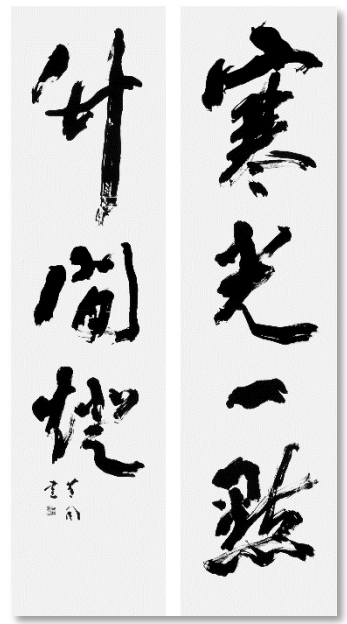 寒光一點
竹間燈